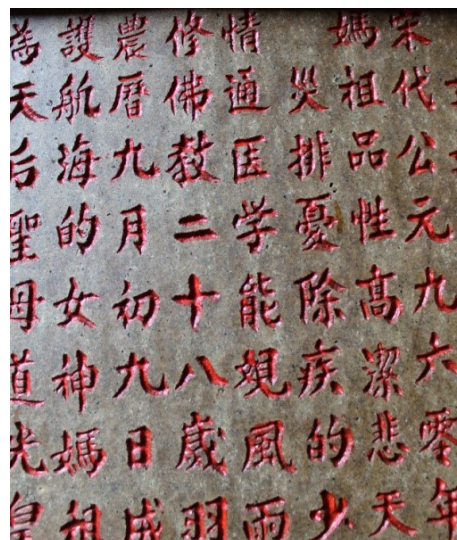 宋代公元九六零年
媽祖品性高潔悲天
災排憂除疾的少
情通医学能覌風雨
修佛教二十八歲羽
農曆九月初九日成
護航海的女神媽祖
為天后聖母道光皇